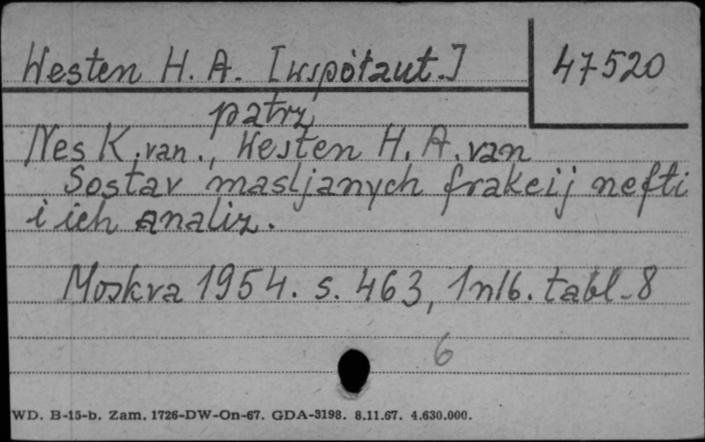 Westen H. A. [współaut.]
47520
patrz
Nes K. van., Westen H. A. van
Sostav masljanych frakcij nefti
i ich analiz.
Moskva 1954. s. 463, 1nlb. tabl. 8
6
WD. B-15-b. Zam. 1726-DW-On-67. GDA-3198. 8.11.67. 4.630.000.